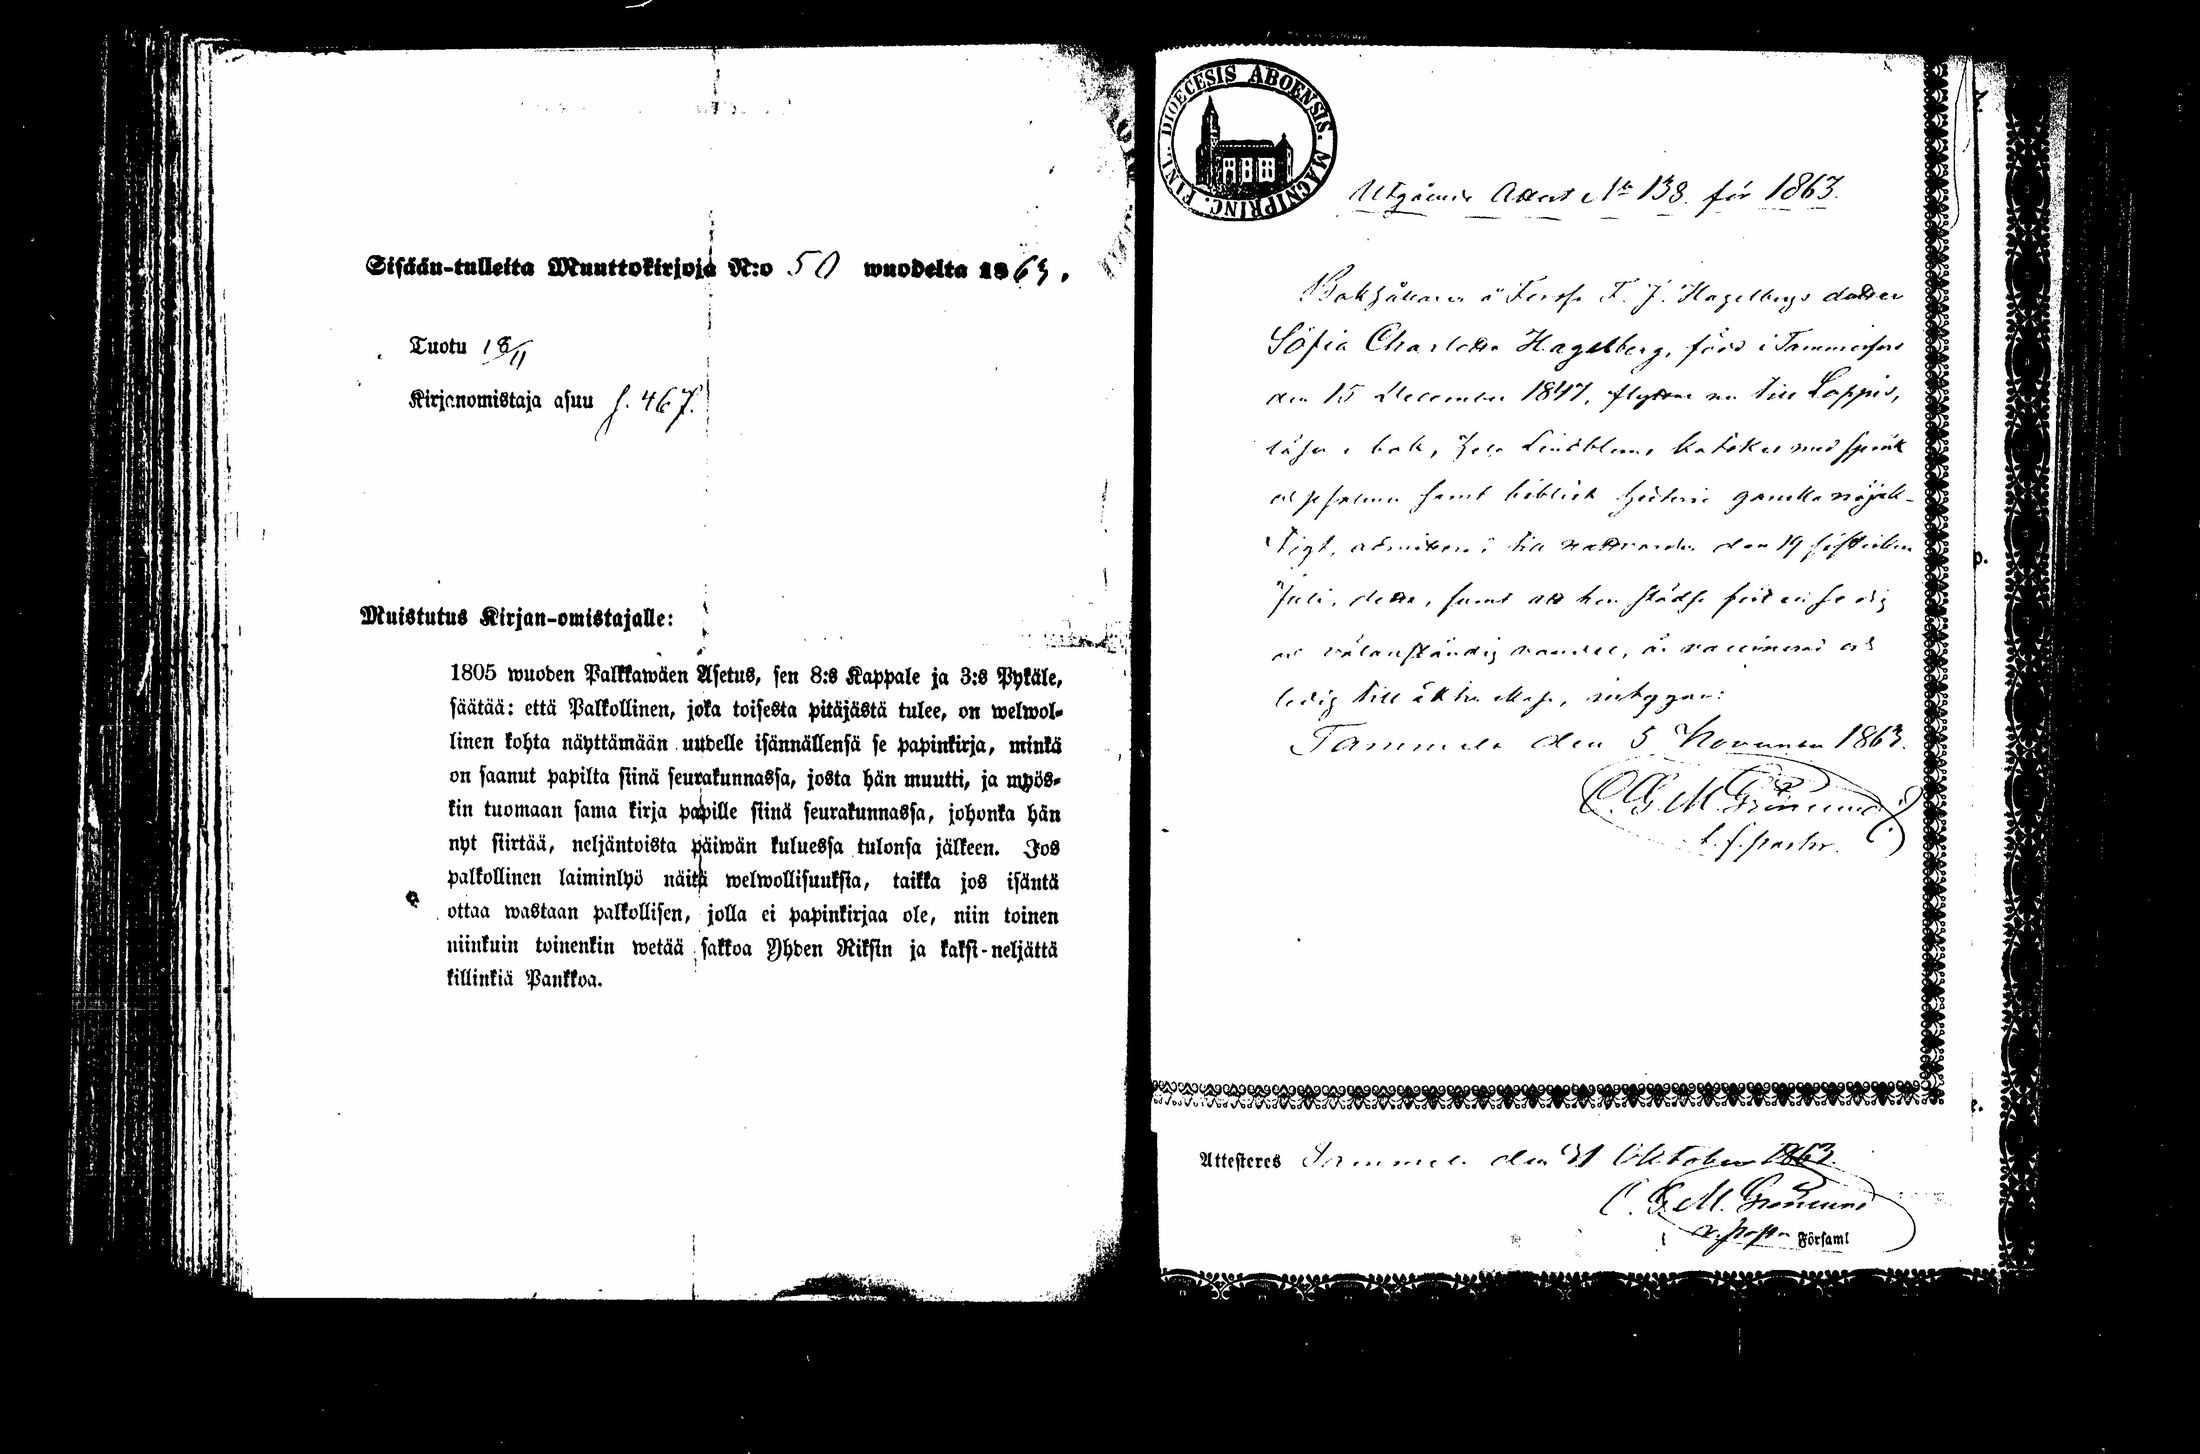 Sisään-tulleita Muuttokirjoja N:o 50 wuodelta 1863.
Tuotu 18/11
Kirjanomistaja asuu s. 467.
Muistutus Kirjan-omistajalle:
1805 wuoden Palkkawäen Asetus, sen 8:s Kappale ja 3:s Pykäle,
säätää: että Palkollinen, joka toisesta pitäjästä tulee, on welwol-
linen kohta näyttämään uudelle isännällensä se papinkirja, minkä
on saanut papilta siinä seurakunnassa, josta hän muutti, ja myös-
kin tuomaan sama kirja papille siinä seurakunnassa, johonka hän
nyt siirtää, neljäntoista päiwän kuluessa tulonsa jälkeen. Jos
palkollinen laiminlyö näitä welwollisuuksia, taikka jos isäntä
ottaa wastaan palkollisen, jolla ei papinkirjaa ole, niin toinen
niinkuin toinenkin wetää sakkoa Yhden Riksin ja kaksi-neljättä
killinkiä Pankkoa.
DIOECESIS ABOENSIS. MAGNIPRINC. FINL.
Utgående Attest No 138 för 1863.
Bokhållaren å Forssa F. J. Hagelbergs dotter
Sofia Charlotta Hagelberg, född i Tammerfors
den 15 December 1847, flyttar nu till Loppis,
läser i bok, hela Lindbloms katekes med språk
och psalmer samt biblisk historie ganska nöjak-
tigt, admitterad till nattvarden den 19 sistvikne
Juli, detta, samt att hon städse fört en sedig
och välanständig vandel, är vaccinerad och
ledig till äkta, intygar:
Tammela den 5 November 1863.
C. G. M. Grönlund
t. f. pastor.
Attesteres Tammela den 31 Oktober 1863.
C. G. M. Grönlund
v. pastor
i Församl